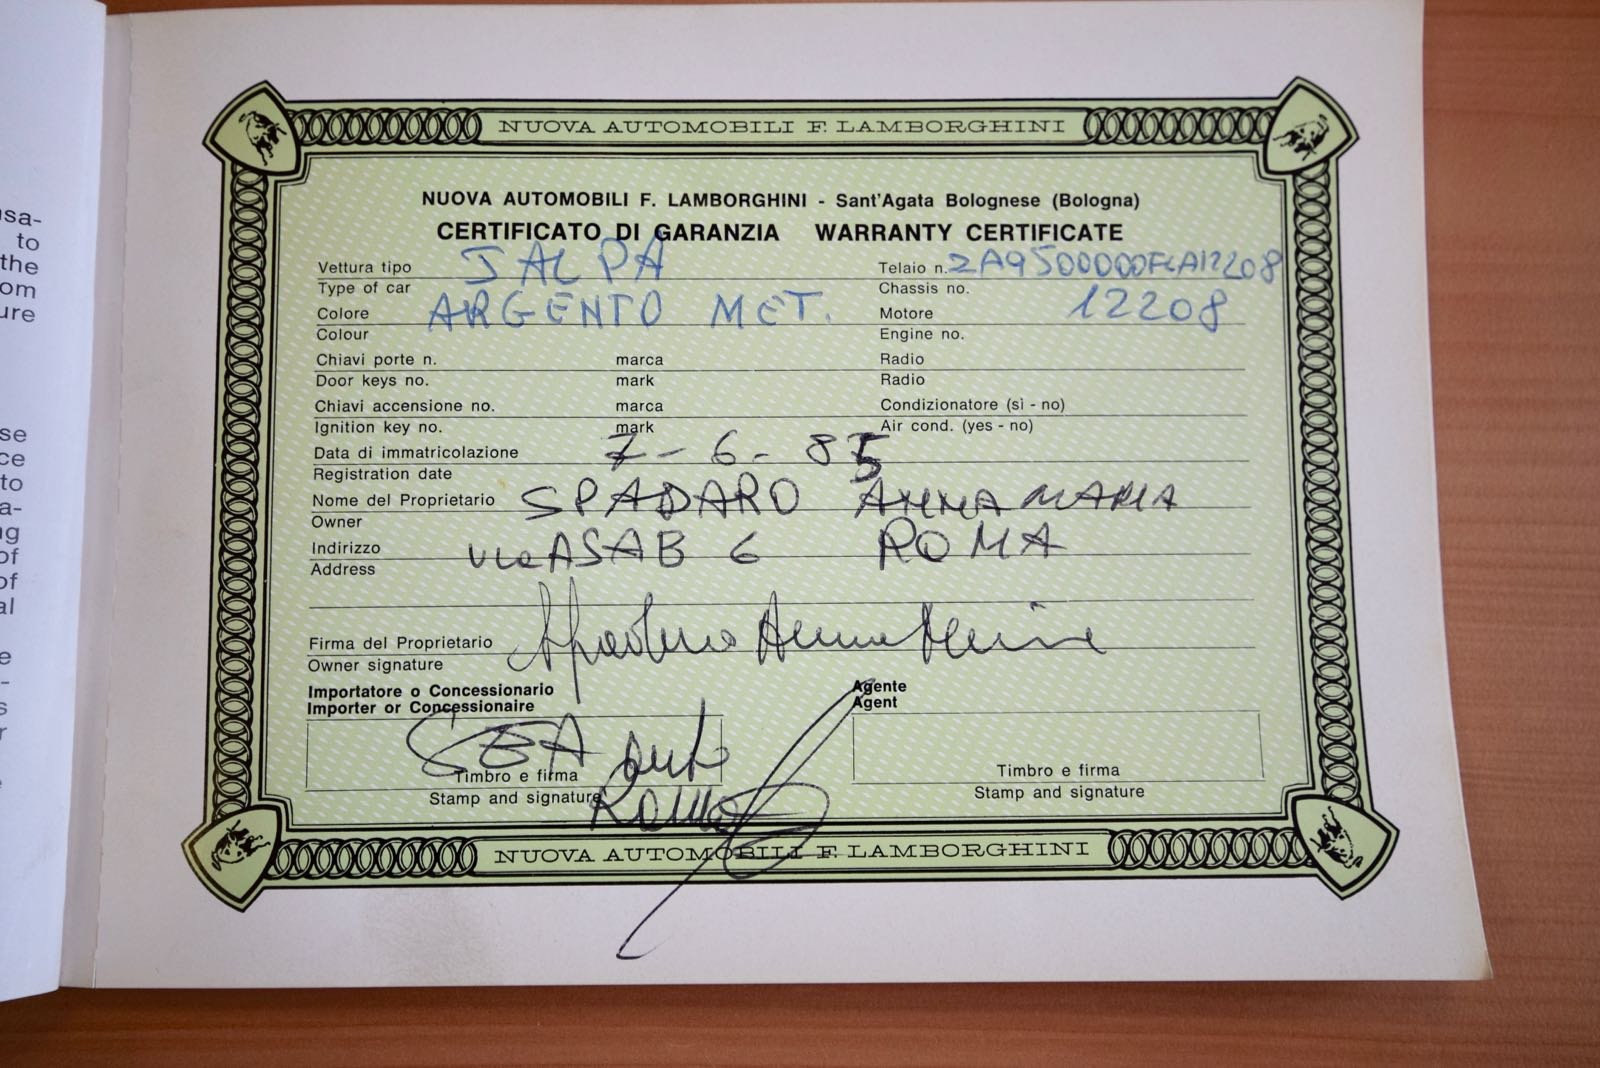 sa-
to
the
om
ure
se
ce
to
a-
ng
of
of
al
e
-
s
r
NUOVA AUTOMOBILI F. LAMBORGHINI
NUOVA AUTOMOBILI F. LAMBORGHINI - Sant'Agata Bolognese (Bologna)
CERTIFICATO DI GARANZIA WARRANTY CERTIFICATE
Vettura tipo JALPA Telaio n. ZA9500000FLA12208
Type of car Chassis no.
Colore ARGENTO MET. Motore 12208
Colour Engine no.
Chiavi porte n. marca Radio
Door keys no. mark Radio
Chiavi accensione no. marca Condizionatore (sì - no)
Ignition key no. mark Air cond. (yes - no)
Data di immatricolazione 7-6-85
Registration date
Nome del Proprietario SPADARO ANNA MARIA
Owner
Indirizzo Via ASAB 6 ROMA
Address
Firma del Proprietario Spadaro Anna Maria
Owner signature
Importatore o Concessionario Agente
Importer or Concessionaire Agent
SEA auto
Timbro e firma Timbro e firma
Stamp and signature Stamp and signature
Roma
NUOVA AUTOMOBILI F. LAMBORGHINI